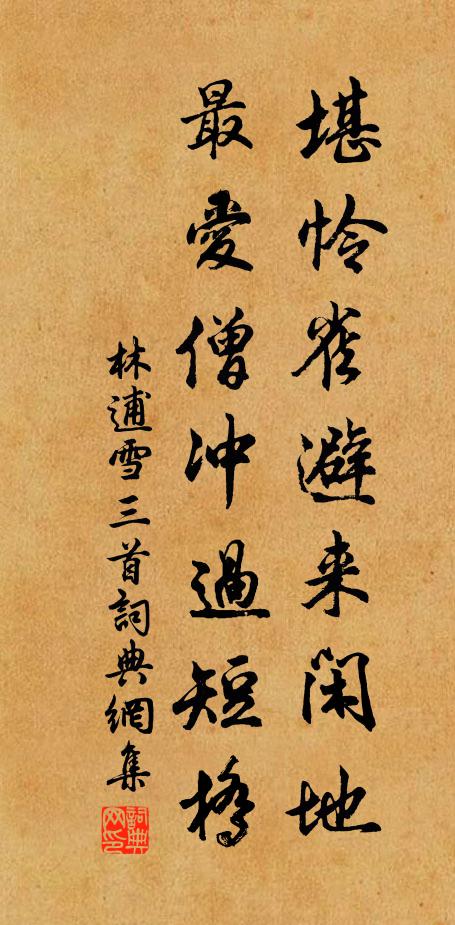 堪怜雀避来闲地
最愛僧冲過短橋
林逋雪三首詞典網集
詞典网印